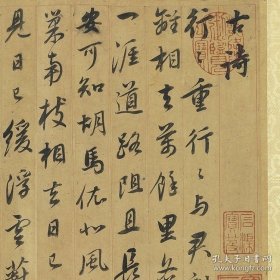 古詩
行〻重行〻与君
離相去萬餘里各
一涯道路阻且長
安可知胡馬依北風
巢南枝相去日已
見日已緩浮雲蔽
孔夫子旧书网